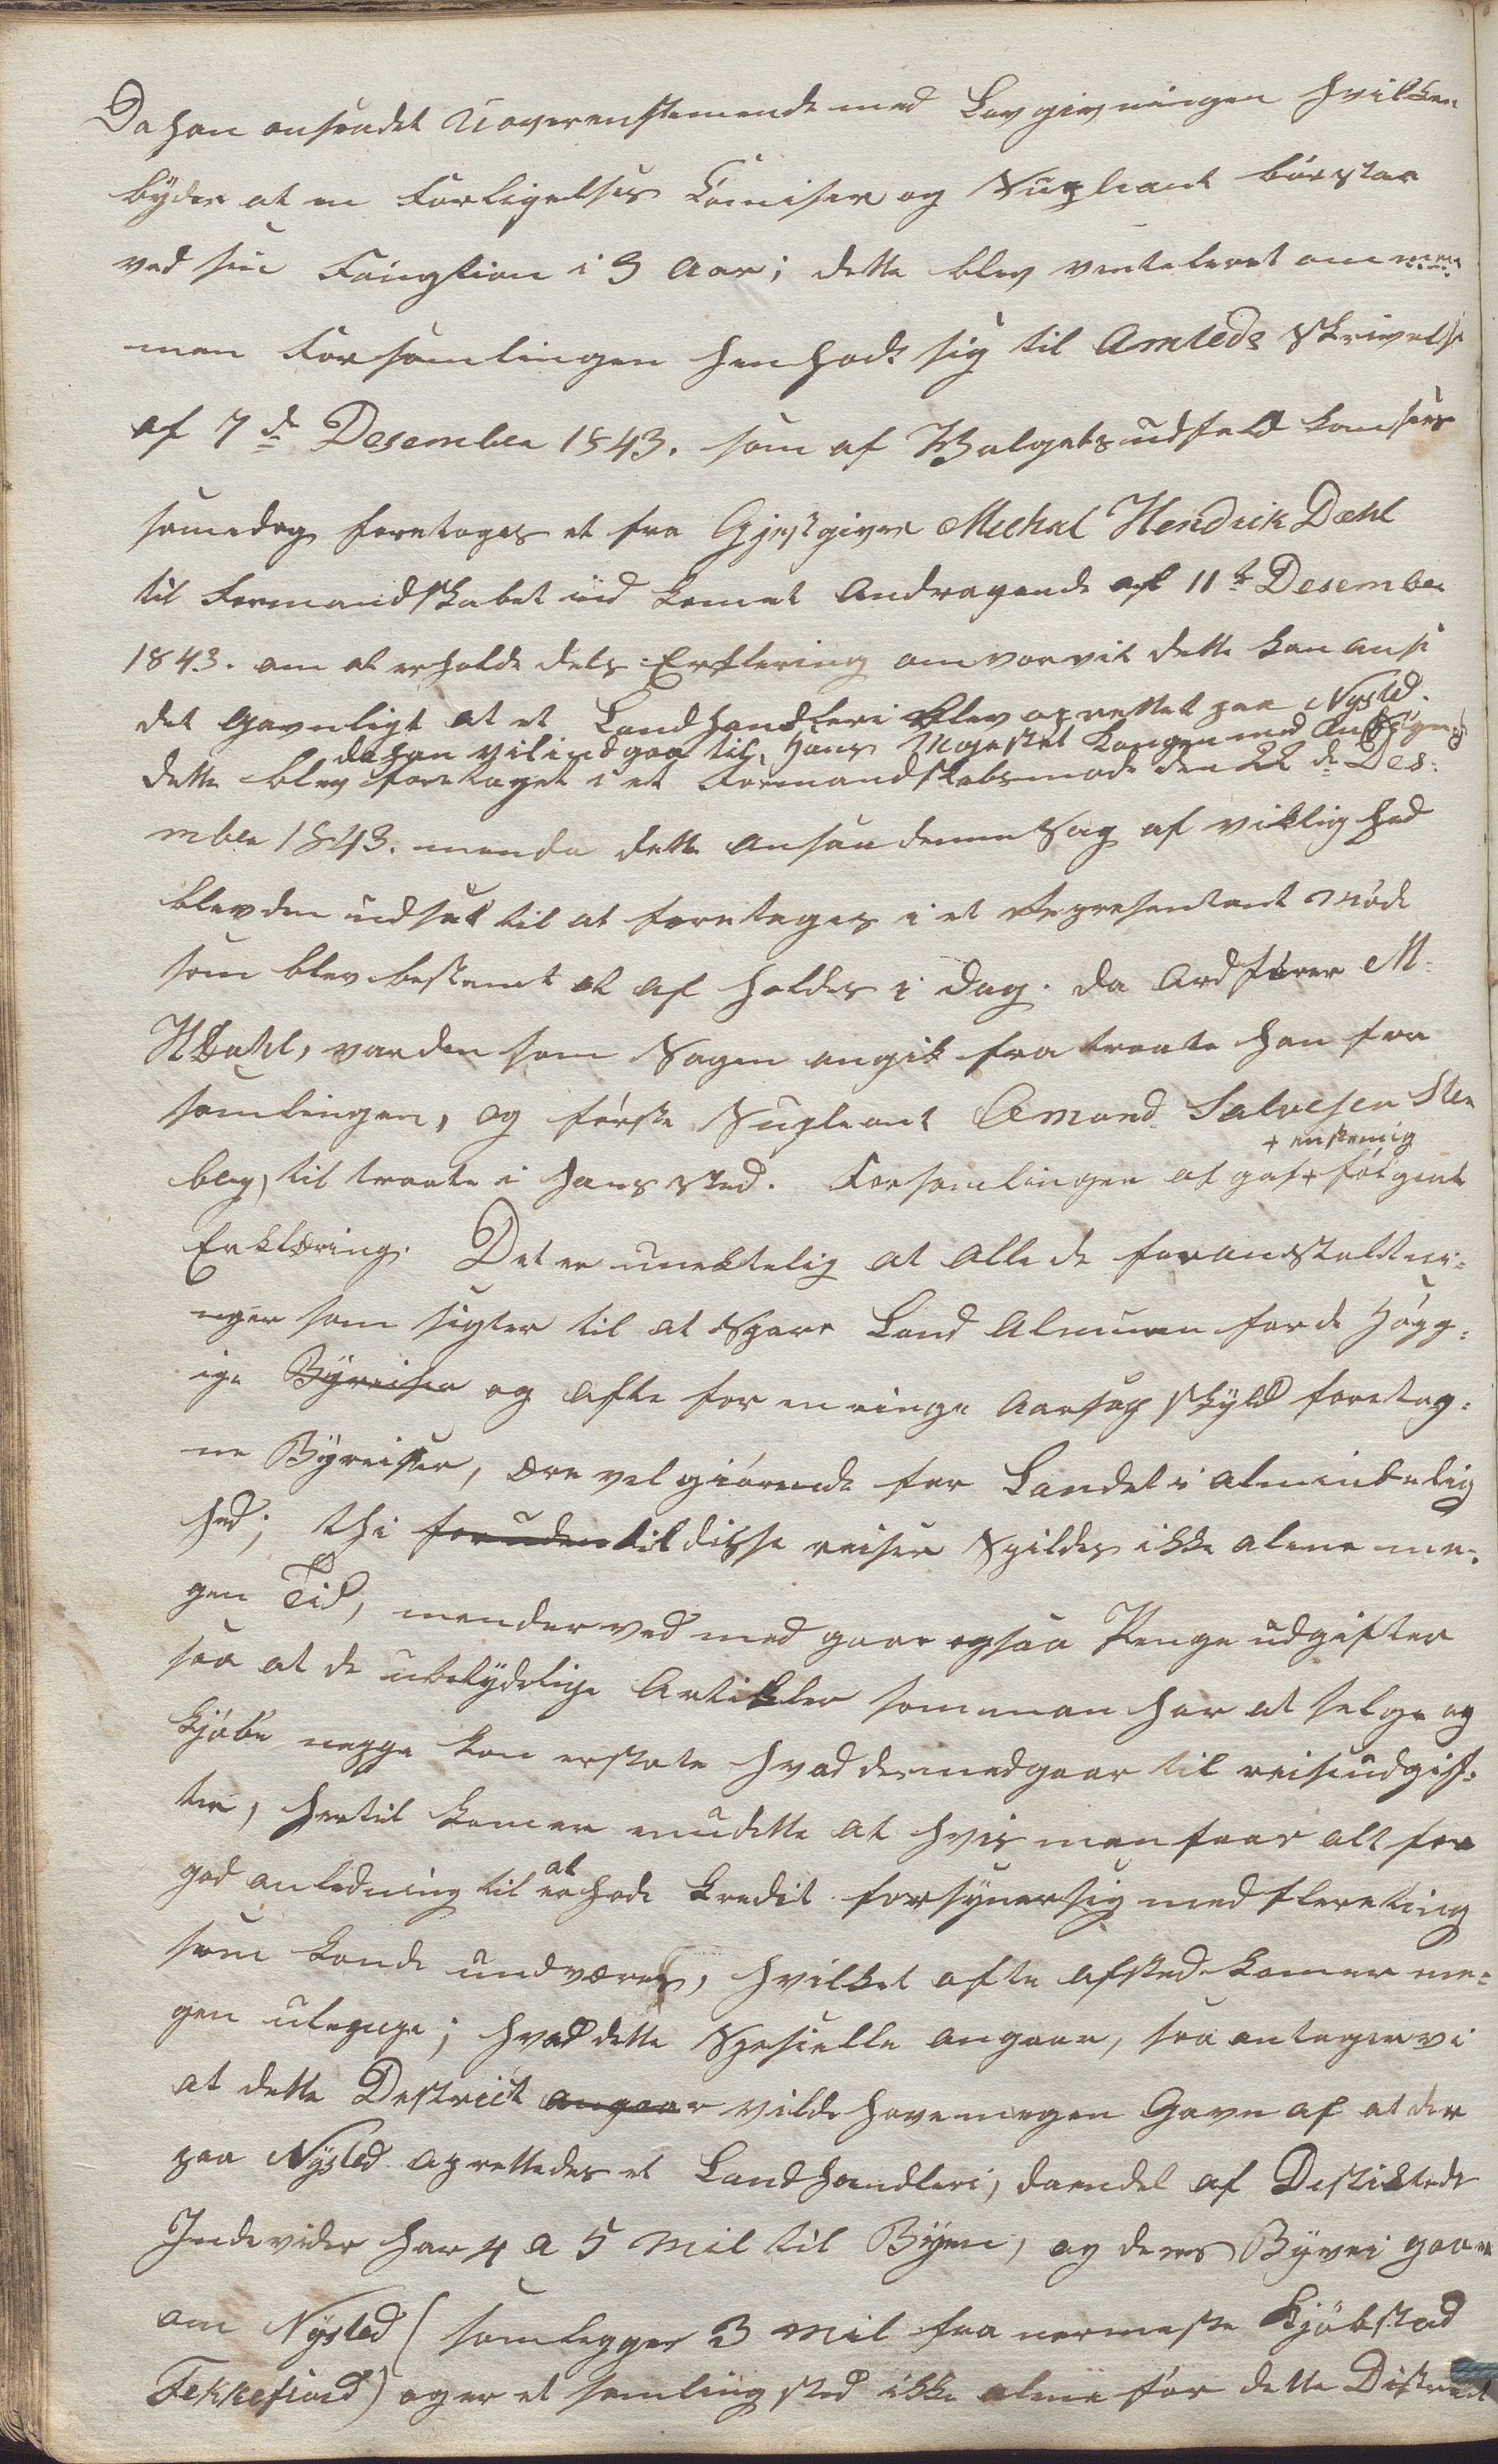 Da han ansaadet Uoverenstemende med Lovgivningen hvilken
byder at en Forligelses Comiser og Supleant bør staa
ved sin Fungtion i 3 Aar; dette blev venteleret om
men Forsamlingen henholdt sig til Amteds Skrivelse
af 7de Desember 1843. som af Valgets udfald kan sees
samedag foretoges et fra Gjestgiver Michal Hendrik Dahl
til Formandskabet ind komet Andragende af 11te Desember
1843. om at erholde dets Erklering om vorvit dette kan anse
det gavnligt at et Landhandleri blev oprettet paa Nysted.
da han vil indgaa til Hans Majestet Kongen med Ansøgning
dette blev foretaget i et Formandskabsmøde den 22de Des:
mber 1843. men da dette ansaa denne Sag af viktighed
blev den udsat til at foretages i et Representant Møde
som blev bestemt at af holdes i Dag. Da Ordfører M.
H Dahl, var den som Sagen angik fra traate han for
samlingen, og første Supleant Amund Salvesen Sle
+ enstemig
bey, til traate i hans sted. Forsamlingen af gaf + følgende
Erklæring. Det er unektelig at alle de foranstaltni=
nger som sigter til at Spare Land Almuen for de hyp=
ige Byreiser og ofte for en ringe Aarsag skyld foretag=
ne Byreiser, ere velgiørende for Landet i almindelig
hed; thi foruden til disse reiser Spildes ikke alene me=
gen Tid, men derved med gaar ogsaa Penge udgifter
saa at de ubetydelige Artikler som man har at selge og
kjøbe neppe kan erstate hvad der medgaar til reiseudgif=
ter, hertil komer endu dette at hvis man faar alt for
god anledning til at erhode kredit forsyner sig med flere ting
som konde undværes, hvilket ofte afsted komer me=
gen ulempe; hvad dette Spesielle angaar, saa antager vi
at dette Destrict angaar vilde have megen Gavn af at der
paa Nysted oprettedes et Landhandleri, da endel af Distiktets
Indevider har 4 a 5 Mil til Byen, og deres Byvei gaar
om Nysted (som legger 3 Mil fra nermeste Kjøbstad
Fekkefiord) og er et samling sted ikke alene for dette Distrect